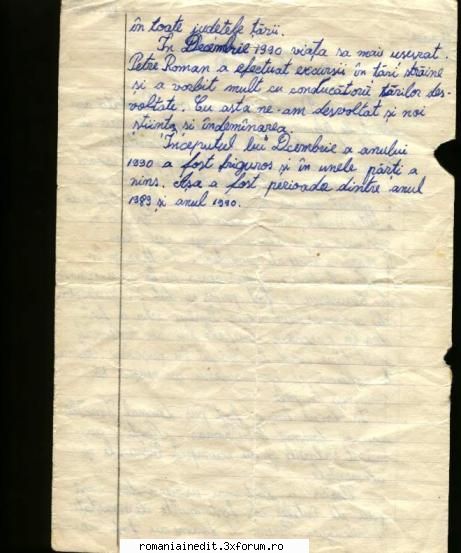 în toate județele țării.
In Decembrie 1990 viața sa mai ușurat.
Petre Roman a efectuat excursii în țări străine
și a vorbit mult cu conducătorii țărilor des-
voltate. Cu asta ne-am desvoltat și noi
știința și îndemînarea.
Începutul lui Dcembrie a anului
1990 a fost friguros și în unele părți a
nins. Așa a fost perioada dintre anul
1989 și anul 1990.
romaniainedit.3xforum.ro